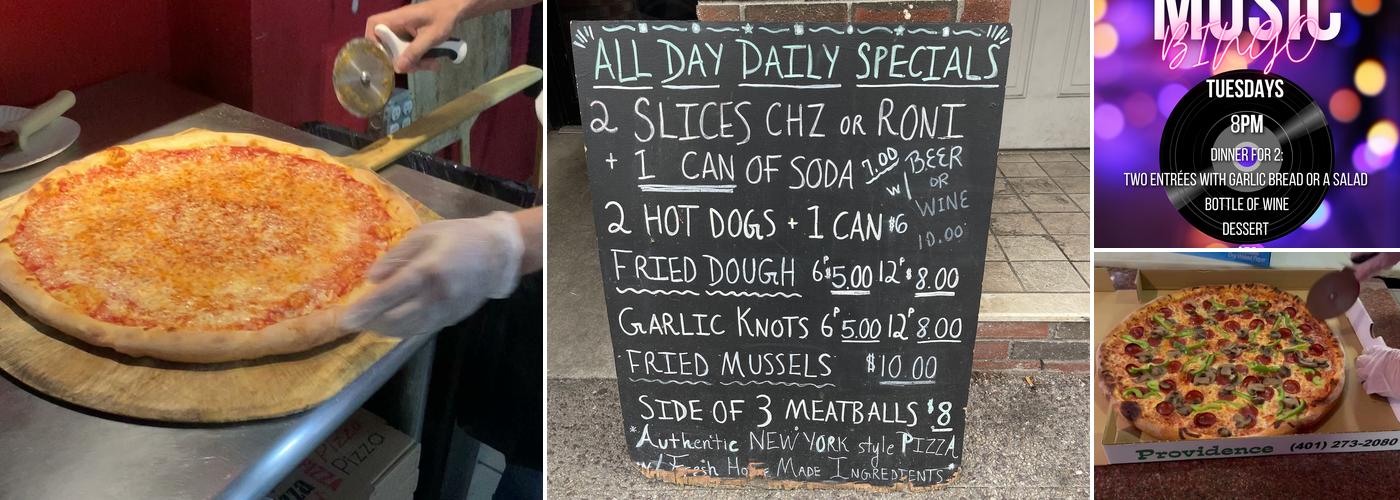 ALL DAY DAILY SPECIALS
2 SLICES CHZ OR RONI
+ 1 CAN OF SODA 7.00
w/ BEER
OR
WINE
10.00
2 HOT DOGS + 1 CAN $6
FRIED DOUGH 6P $5.00 12P $8.00
GARLIC KNOTS 6P 5.00 12P 8.00
FRIED MUSSELS $10.00
SIDE OF 3 MEATBALLS $8
*Authentic NEW YORK style PIZZA
w/ Fresh Home MADE INGREDIENTS*
Pizza
Pizza
MUSIC
BINGO
TUESDAYS
8PM
DINNER FOR 2:
TWO ENTRÉES WITH GARLIC BREAD OR A SALAD
BOTTLE OF WINE
DESSERT
Providence (401) 273-2080